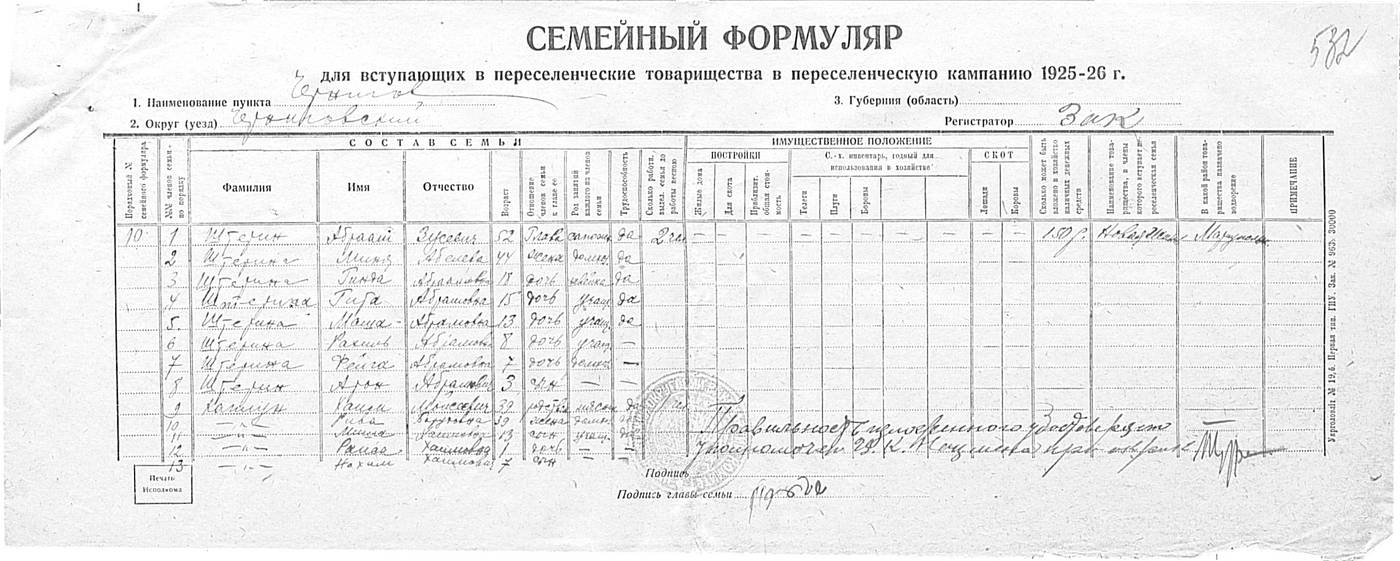 СЕМЕЙНЫЙ ФОРМУЛЯР
532
для вступающих в переселенческие товарищества в переселенческую кампанию 1925-26 г.
1. Наименование пункта Чернигов
3. Губерния (область)
2. Округ (уезд) Черниговский
Регистратор Зак
СОСТАВ СЕМЬИ
ИМУЩЕСТВЕННОЕ ПОЛОЖЕНИЕ
Порядковый № семейного формуляра
№№ членов семьи по порядку
Фамилия
Имя
Отчество
Возраст
Отношение членов семьи к главе ее
Род занятий каждого из членов семьи
Трудоспособность
Сколько работн. выдел. семья до работы весною
ПОСТРОЙКИ
Жилые дома
Для скота
Приблизит. общая стоимость
С.-х. инвентарь, годный для использования в хозяйстве
Телеги
Плуги
Бороны
СКОТ
Лошади
Коровы
Сколько может быть вложено в хозяйство наличных денежных средств
Наименование товарищества, в члены которого вступает переселенческая семья
В какой район товарищества назначено водворение
ПРИМЕЧАНИЕ
10 1 Штерин Абрам Зусевич 52 Глава сапожн да 2 чел 150 р. Новая
2 Штерина Абелева 44 жена домхоз да
3 Штерина Гинда Абрамовна 18 дочь швейка да
4 Штерина Гита Абрамовна 15 дочь учащ да
5. Штерина Маша Абрамовна 13 дочь учащ. да
6 Штерина Рахиль Абрамовна 8 дочь учащ —
7 Штерина Фейга Абрамовна 7 дочь домхоз —
8 Штерин Арон Абрамович 3 сын — —
9 Хаим Моисеевич 39 да 1 чел
10 —"— Рива 39 жена домхоз да
11 —"— 13 сын учащ. да
12 —"— Хаимовна 1 дочь —
13 —"— Нохим Хаимович 7 сын
Правильность удостоверяю
Печать Исполкома
Подпись
Подпись главы семьи
Укрголовліт № 19,6. Первая тип. ГПУ. Зак. № 963. 30000